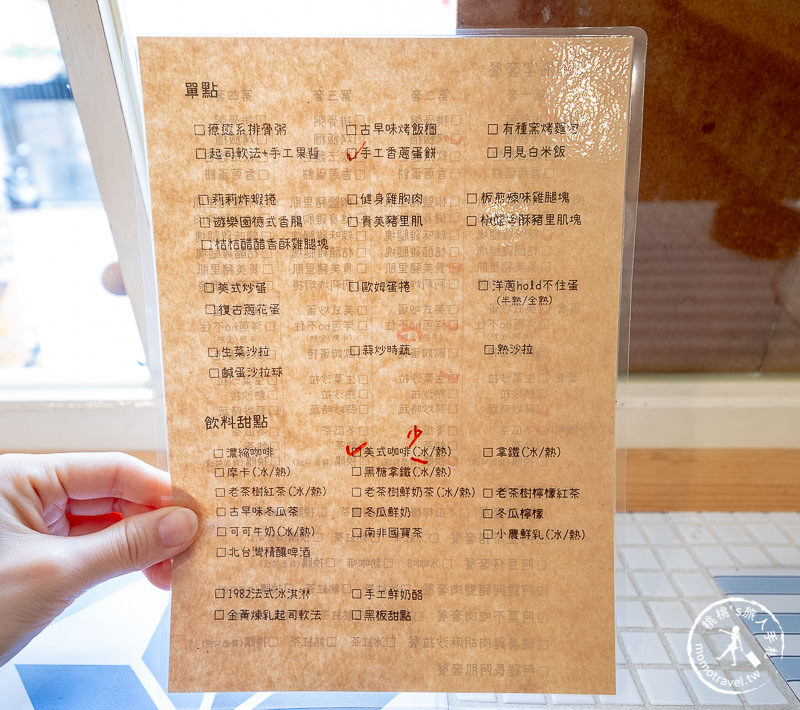 單點
□療癒系排骨粥 □古早味烤飯糰 □有種窯烤麵包
□起司軟法+手工果醬 □手工香蔥蛋餅 □月見白米飯
□莉莉炸蝦捲 □健身雞胸肉 □板煎辣味雞腿塊
□遊樂園德式香腸 □貴美豬里肌 □椒鹽香酥豬里肌塊
□桔桔醋醋香酥雞腿塊
□美式炒蛋 □歐姆蛋捲 □洋蔥hold不住蛋
(半熟/全熟)
□復古蔥花蛋
□生菜沙拉 □蒜炒時蔬 □熟沙拉
□鹹蛋沙拉球
飲料甜點
少
□濃縮咖啡 □美式咖啡(冰/熱) □拿鐵(冰/熱)
□摩卡(冰/熱) □黑糖拿鐵(冰/熱)
□老茶樹紅茶(冰/熱) □老茶樹鮮奶茶(冰/熱) □老茶樹檸檬紅茶
□古早味冬瓜茶 □冬瓜鮮奶 □冬瓜檸檬
□可可牛奶(冰/熱) □南非國寶茶 □小農鮮乳(冰/熱)
□北台灣精釀啤酒
□1982法式冰淇淋 □手工鮮奶酪
□金黃煉乳起司軟法 □黑板甜點
桃桃's旅人手札
momotravel.tw